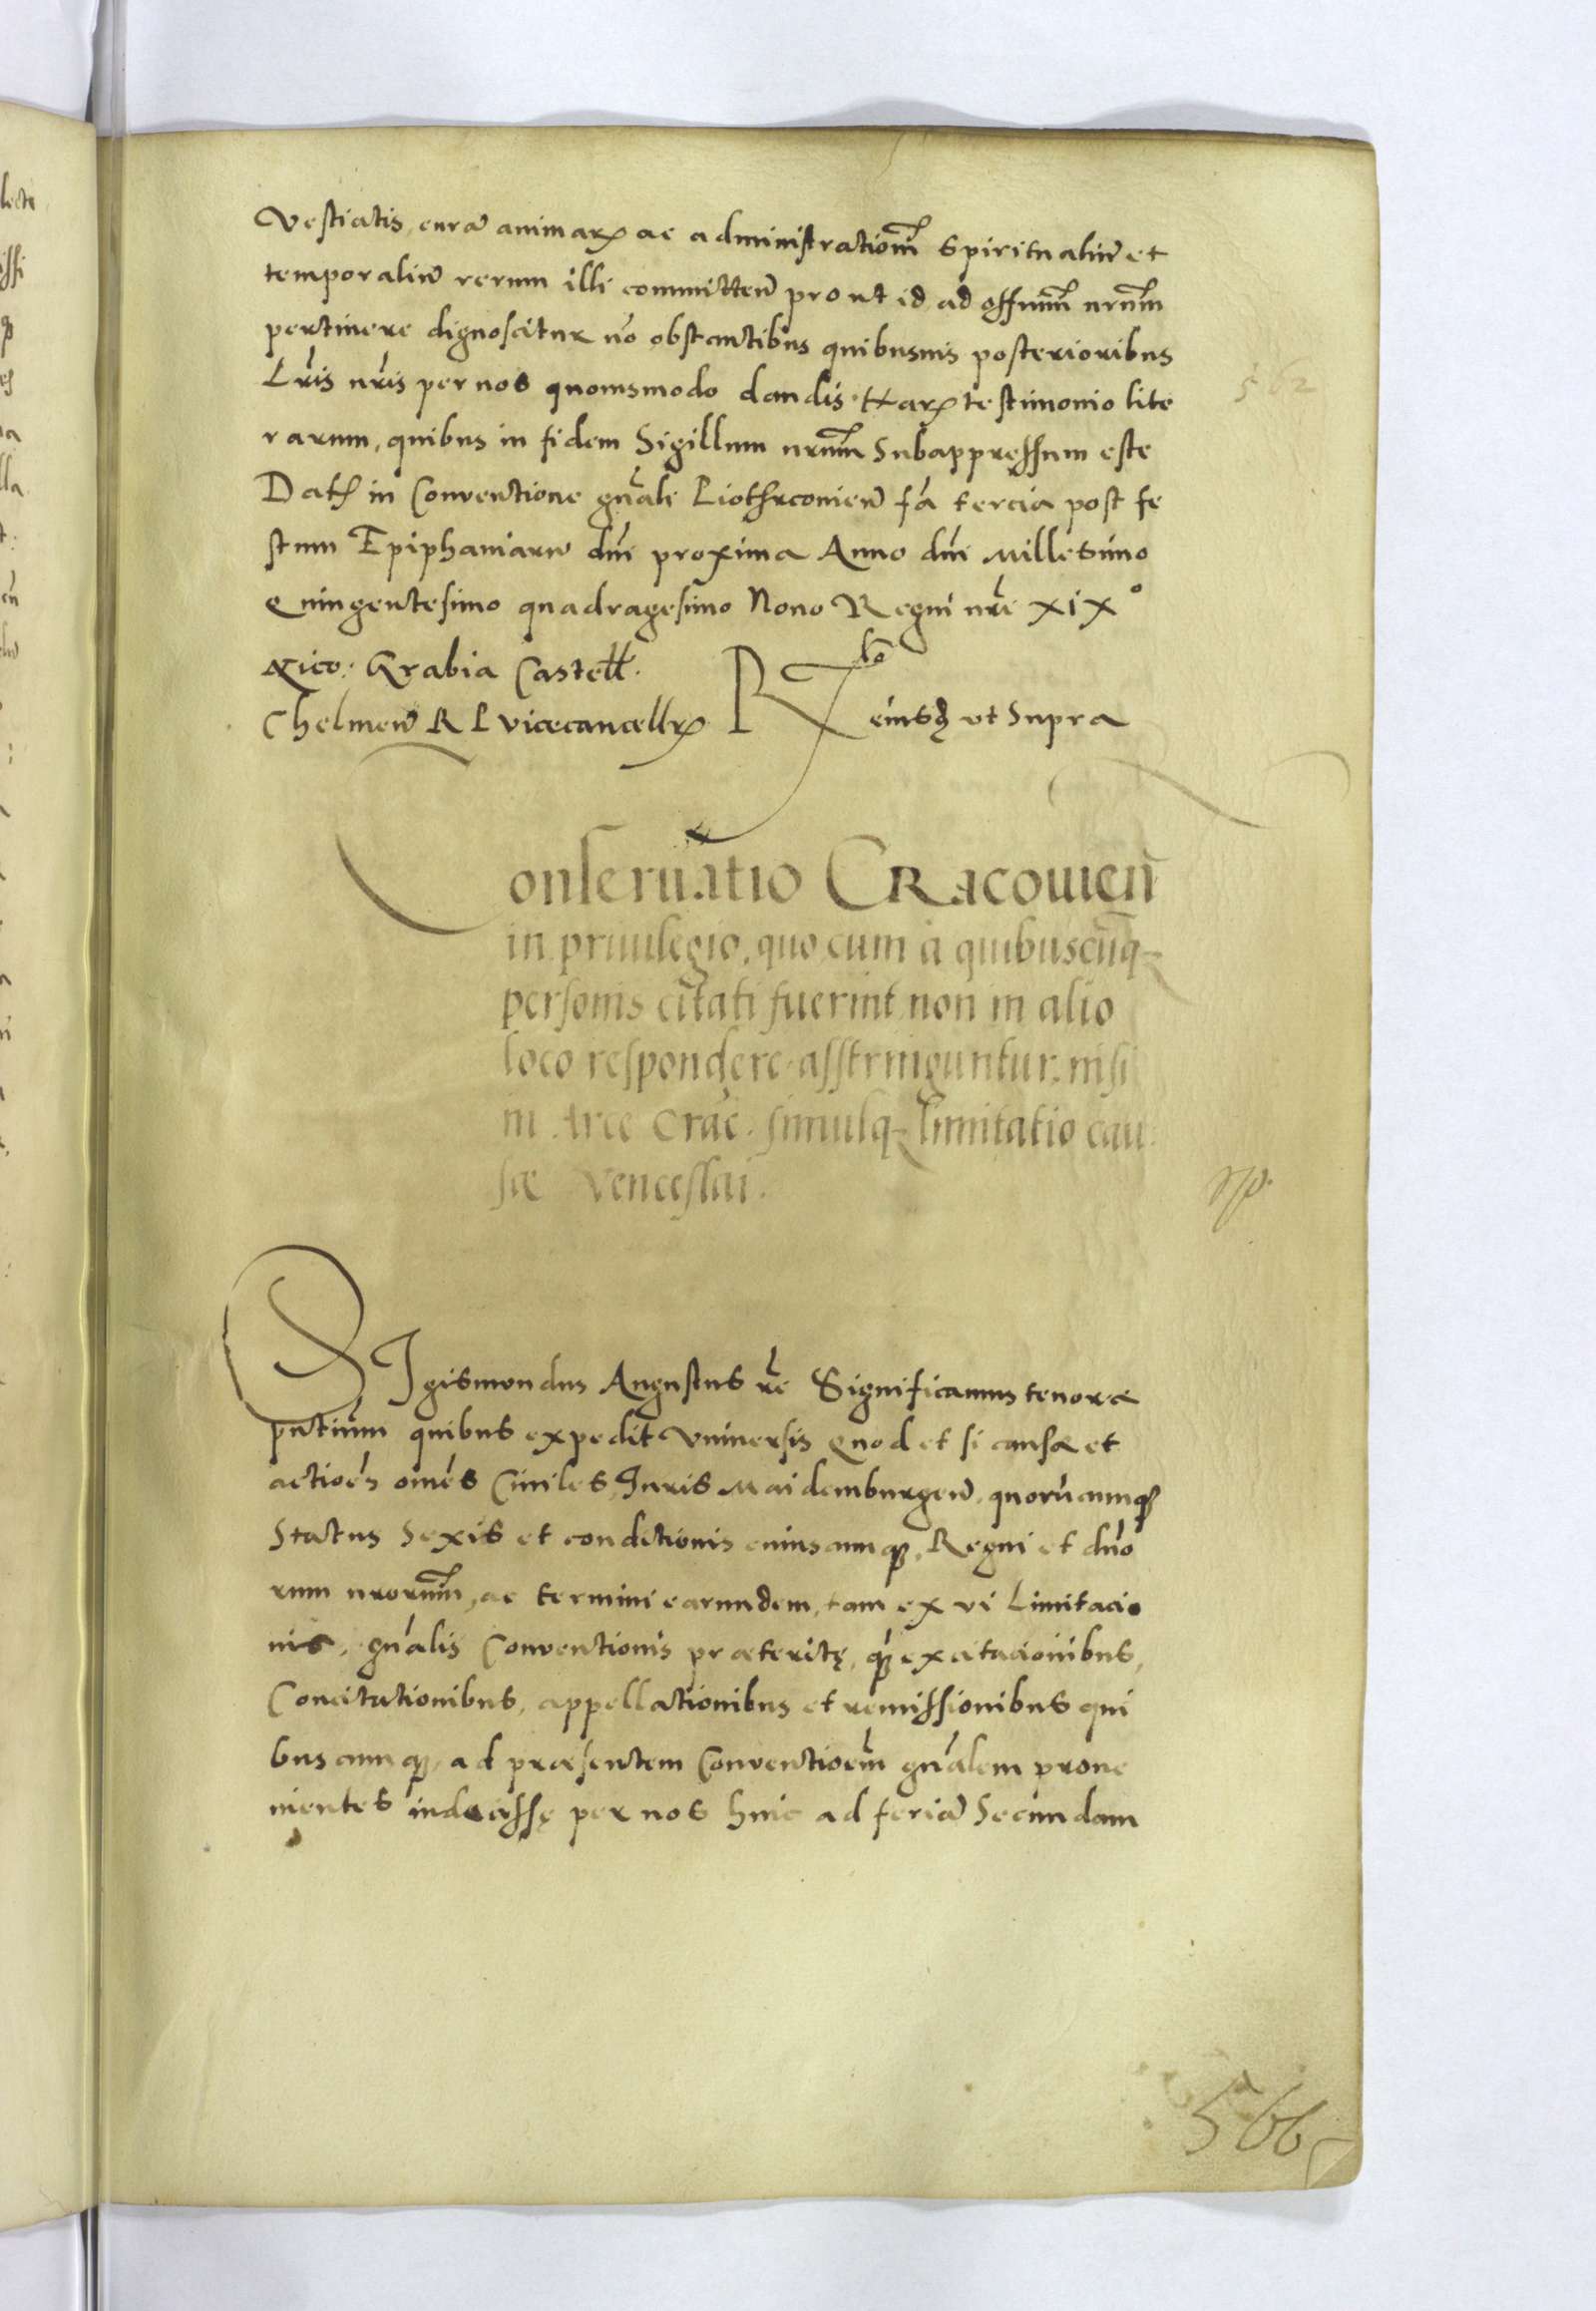 Vestiatis, curã animarꝝ ac administrationẽ Spiritualiũ et
temporaliũ rerum illi committeñ prout id ad offitium nr̃um
pertinere dignoscitur nõ obstantibus quibusuis posterioribus
Lr̃is nr̃is per nos quouismodo dandis. Harꝝ testimonio lite
rarum, quibus in fidem Sigillum nr̃um Subappressum este
Datꝭ in Conventione gñali Piotrconieñ fã tercia post fe
stum Epiphaniarũ dñi proxima Anno dñi Millesimo
Quingentesimo quadragesimo Nono Regni nr̃i XIX°
Nico: Grabia Castell.
Chelmeñ R P vicecancellrꝰ R eiusdꝫ ut Supra
562
Conseruatio Cracouieñ
in priuilegio, quo cum à quibuscũqꝫ
personis citati fuerint non in alio
loco respondere asstringuntur, nisi
in Arce Crac. simulqꝫ limitatio cau
sæ Venceslai.
SIgismundus Augustus rẽ Significamus tenore
pñtium quibus expedit Vniuersis Quod et si causæ et
actioẽs om̃es Ciuiles, Iuris Maidemburgeñ, quorũcumqꝫ
Status Sexus et conditionis cuiuscumqꝫ, Regni et dño
rum nrorum, ac termini earumdem, tam ex vi Limitacio
nis, gñalis Conventionis præteritę, qꝫ ex citacionibus,
Concitationibus, appellationibus et remissionibus qui
buscumqꝫ, ad præsentem Conventioẽm gñalem proue
nientes indecissę per nos huic ad feriã Secundam
566